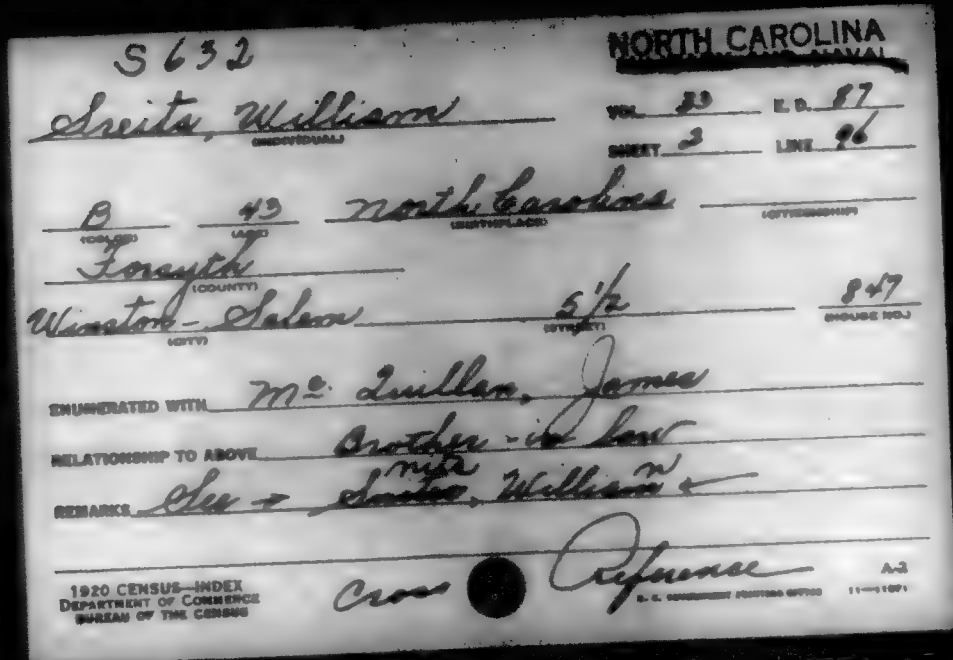 S632
NORTH CAROLINA
Sreits, William
(INDIVIDUAL)
VOL. 83 E. D. 87
SHEET 2 LINE 96
B 43 North Carolina
(COLOR) (AGE) (BIRTHPLACE) (CITIZENSHIP)
Forsyth
(COUNTY)
Winston-Salem 5 1/2 847
(CITY) (STREET) (HOUSE NO.)
ENUMERATED WITH Mc Quillan, James
RELATIONSHIP TO ABOVE Brother-in law
REMARKS See → William ←
Cross Reference
1920 CENSUS—INDEX
DEPARTMENT OF COMMERCE
BUREAU OF THE CENSUS
U. S. GOVERNMENT PRINTING OFFICE
A-3